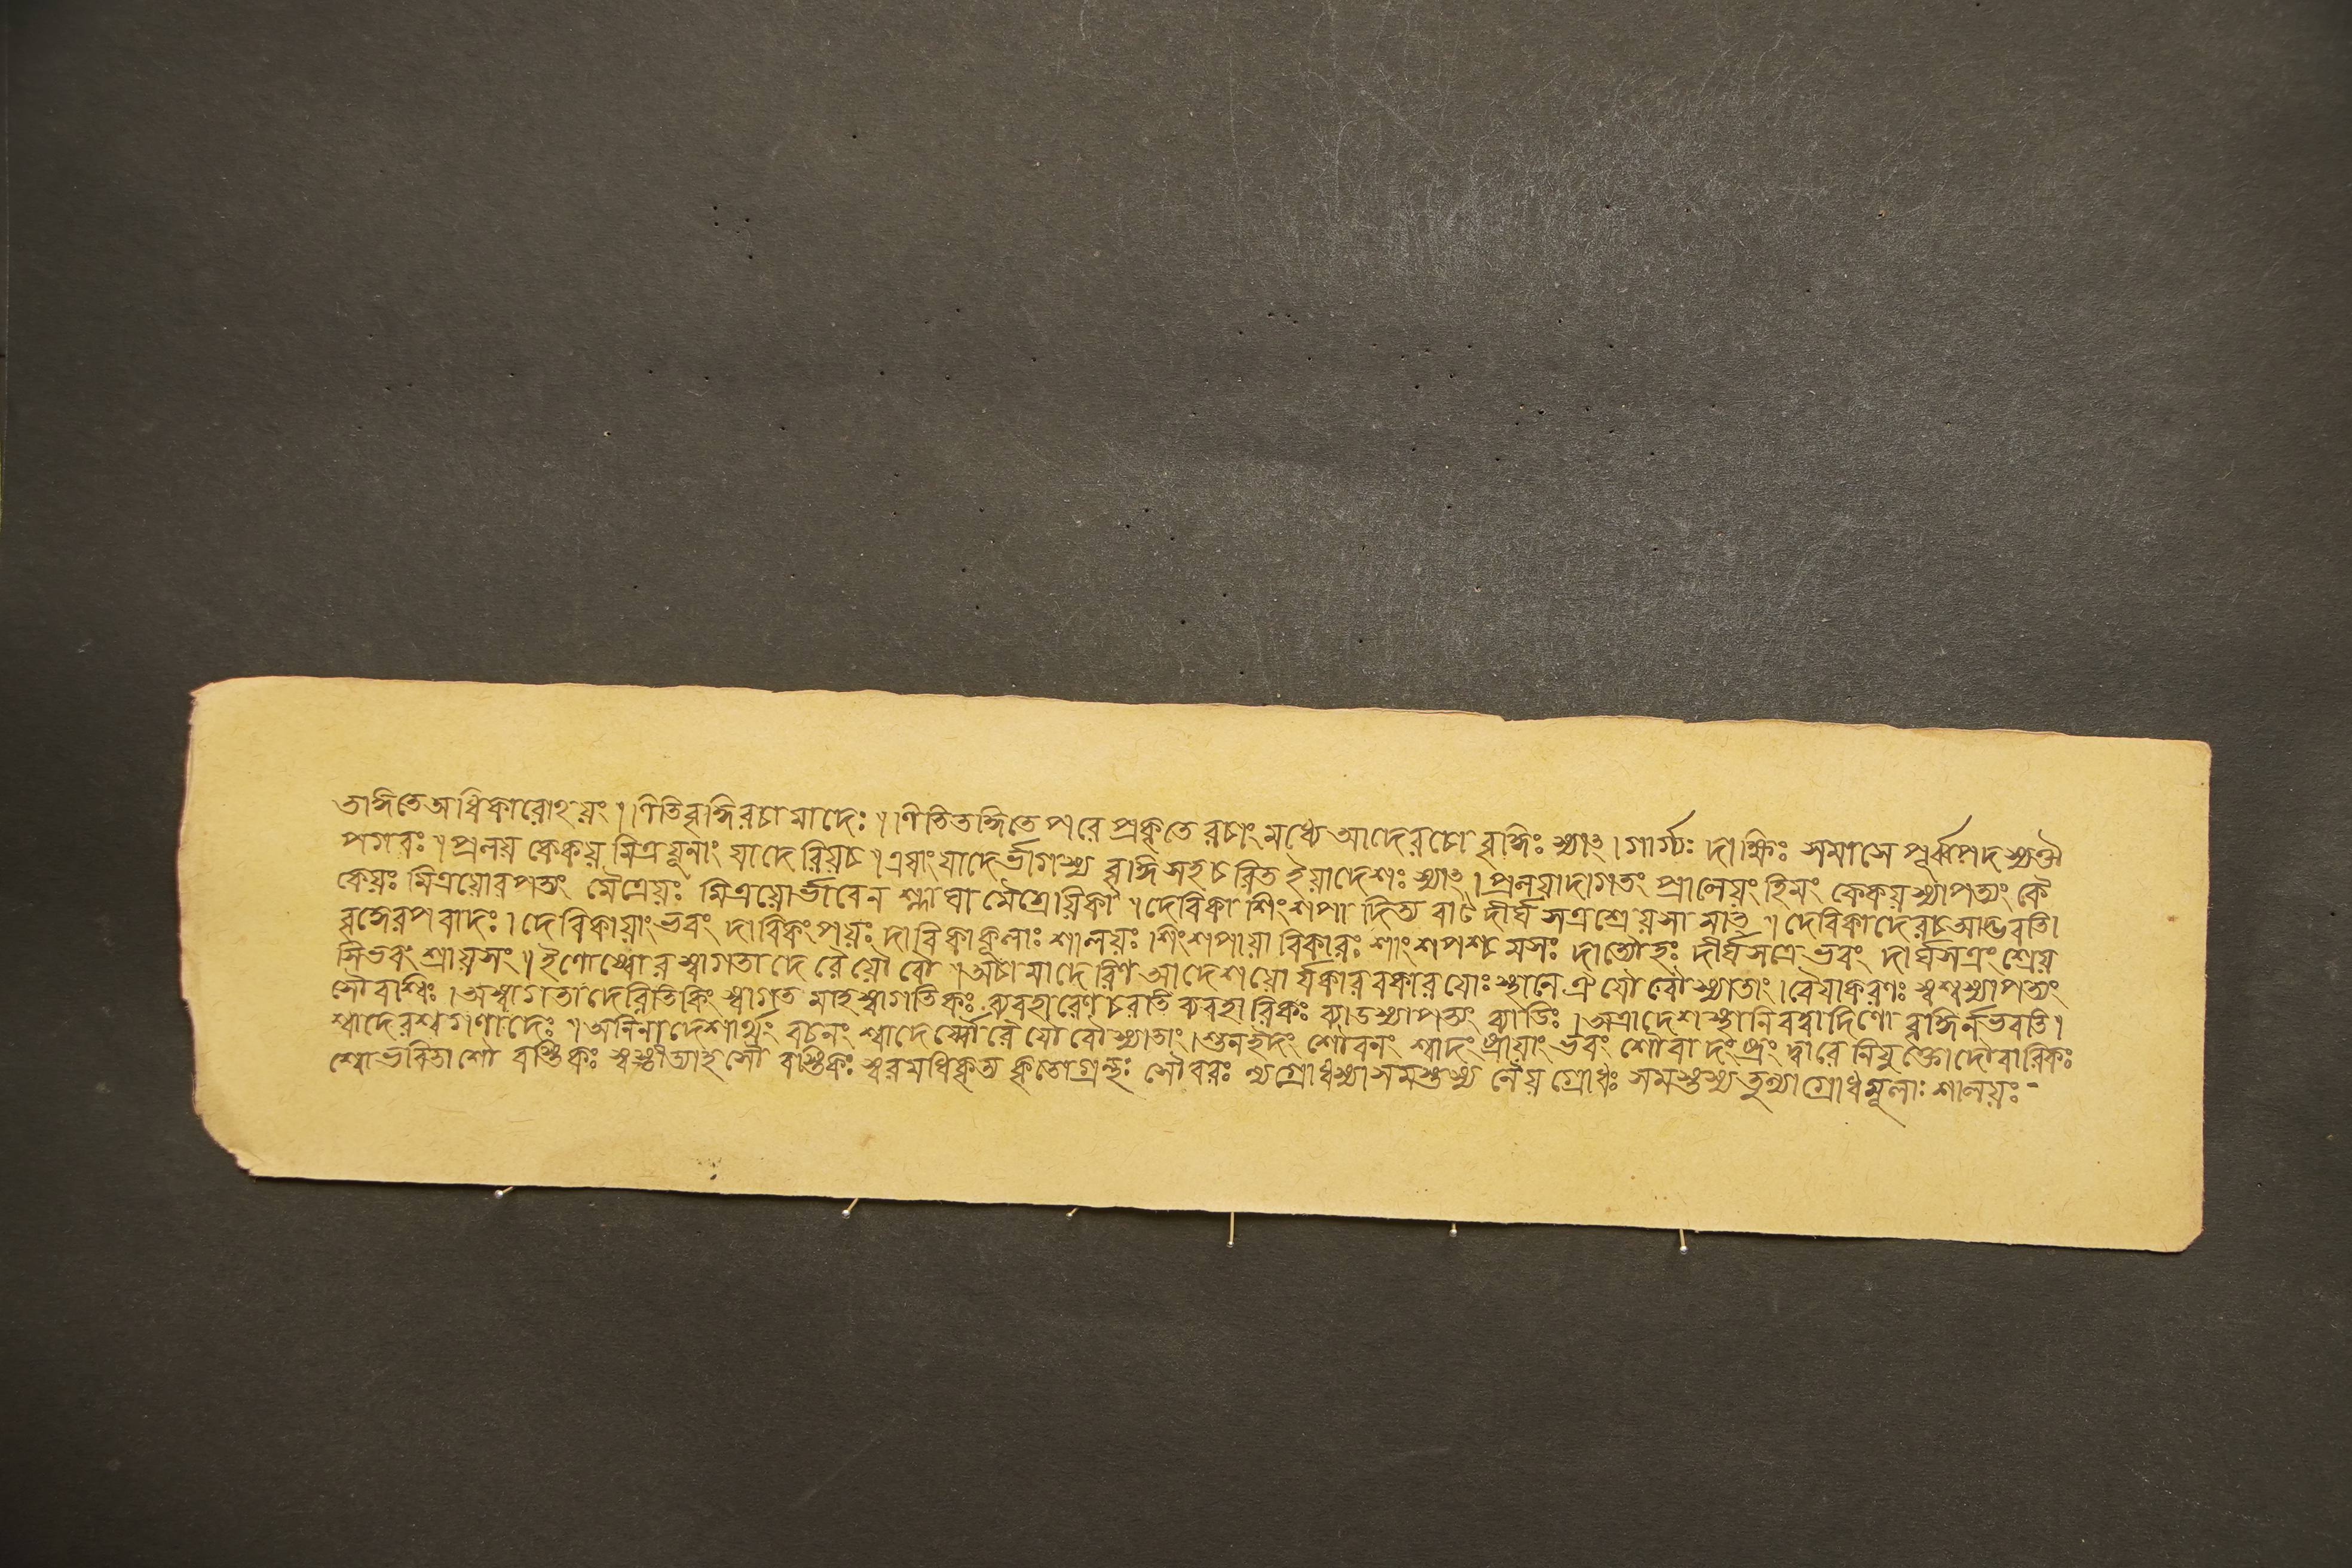 তদ্ধিতে অধিকারোঽয়ং ॥ ণিতি বৃদ্ধিরচামাদেঃ ॥ ণিতি তদ্ধিতে পরে প্রকৃতেরচাং মধ্যে আদেরচো বৃদ্ধিঃ স্যাৎ । গার্গ্যঃ দাক্ষিঃ সমাসে পূর্ব্বপদস্য ঔ
পগবঃ ॥ প্রলয় কেকয় মিত্রয়ূনাং যাদেরিয়চ ॥ এষাং যাদের্ভাগস্য বৃদ্ধিসহচরিত ইয়াদেশঃ স্যাৎ । প্রলয়াদাগতং প্রালেয়ং হিমং কেকয়স্যাপত্যং কৈ
কেয়ঃ মিত্রয়োরপত্যং মৈত্রেয়ঃ মিত্রয়োর্ভাবেন শ্লাঘা মৈত্রেয়িকা ॥ দেবিকা শিংশপা দিত্যবাট দীর্ঘসত্রশ্রেয়সামাৎ ॥ দেবিকাদেরচ আদ্ভবতি।
বৃদ্ধেরপবাদঃ । দেবিকায়াং ভবং দাবিকং পয়ঃ দাবিকাকূলাঃ শালয়ঃ । শিংশপায়া বিকারঃ শাংশপশ্চমসঃ দাত্যৌহঃ দীর্ঘসত্রে ভবং দার্ঘসত্রং শ্রেয়
সি ভবং শ্রায়সং ॥ ইণোয্বোরস্বাগতাদেরৈয়ৌবৌ ॥ অচামাদেরিণ আদেশয়োর্যকারবকারয়োঃ স্থানে ঐযৌবৌ স্যাতাং । বৈয়াকরণঃ স্বশ্বস্যাপত্যং
সৌবাশ্বিঃ । অস্বাগতাদেরিতি কিং স্বাগতমাহ স্বাগতিকঃ ব্যবহারেণ চরতি ব্যবহারিকঃ ব্যাডস্যাপত্যং ব্যাডিঃ । অত্রাদেশ স্থানিবদ্বাদিণো বৃদ্ধির্নভবতি ।
শ্বাদেরশ্বগণাদেঃ ॥ অনিনাদেশার্থং বচনং শ্বাদের্য্বোরৈযৌবৌ স্যাতাং । শুন ইদং শৌবনং শ্বাদংষ্ট্রায়াং ভবং শৌবাদংষ্ট্রং দ্বারে নিযুক্তো দৌবারিকঃ
শ্বোভবিতা শৌবস্তিকঃ স্বস্তীত্যাহ সৌবস্তিকঃ স্বরমধিকৃত্য কৃতোগ্রন্থঃ সৌবরঃ ন্যগ্রোধস্যাসমস্তস্য নৈয়গ্রোধঃ সমস্তস্য তু ন্যাগ্রোধমূলাঃ শালয়ঃ -